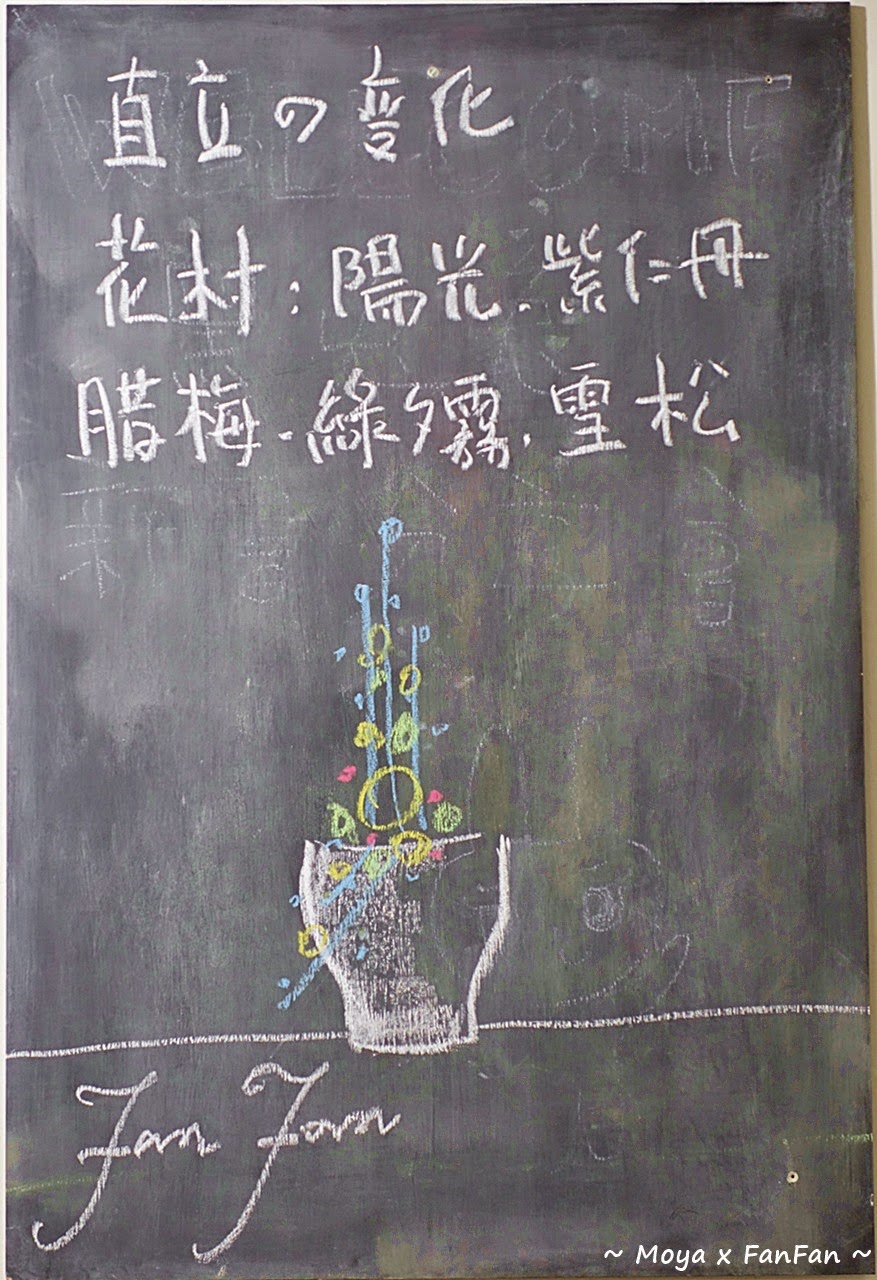 直立の変化
花材：陽光.紫仁丹
腊梅.綠夕霧.雪松
WELCOME
Fan Fan
~ Moya x FanFan ~